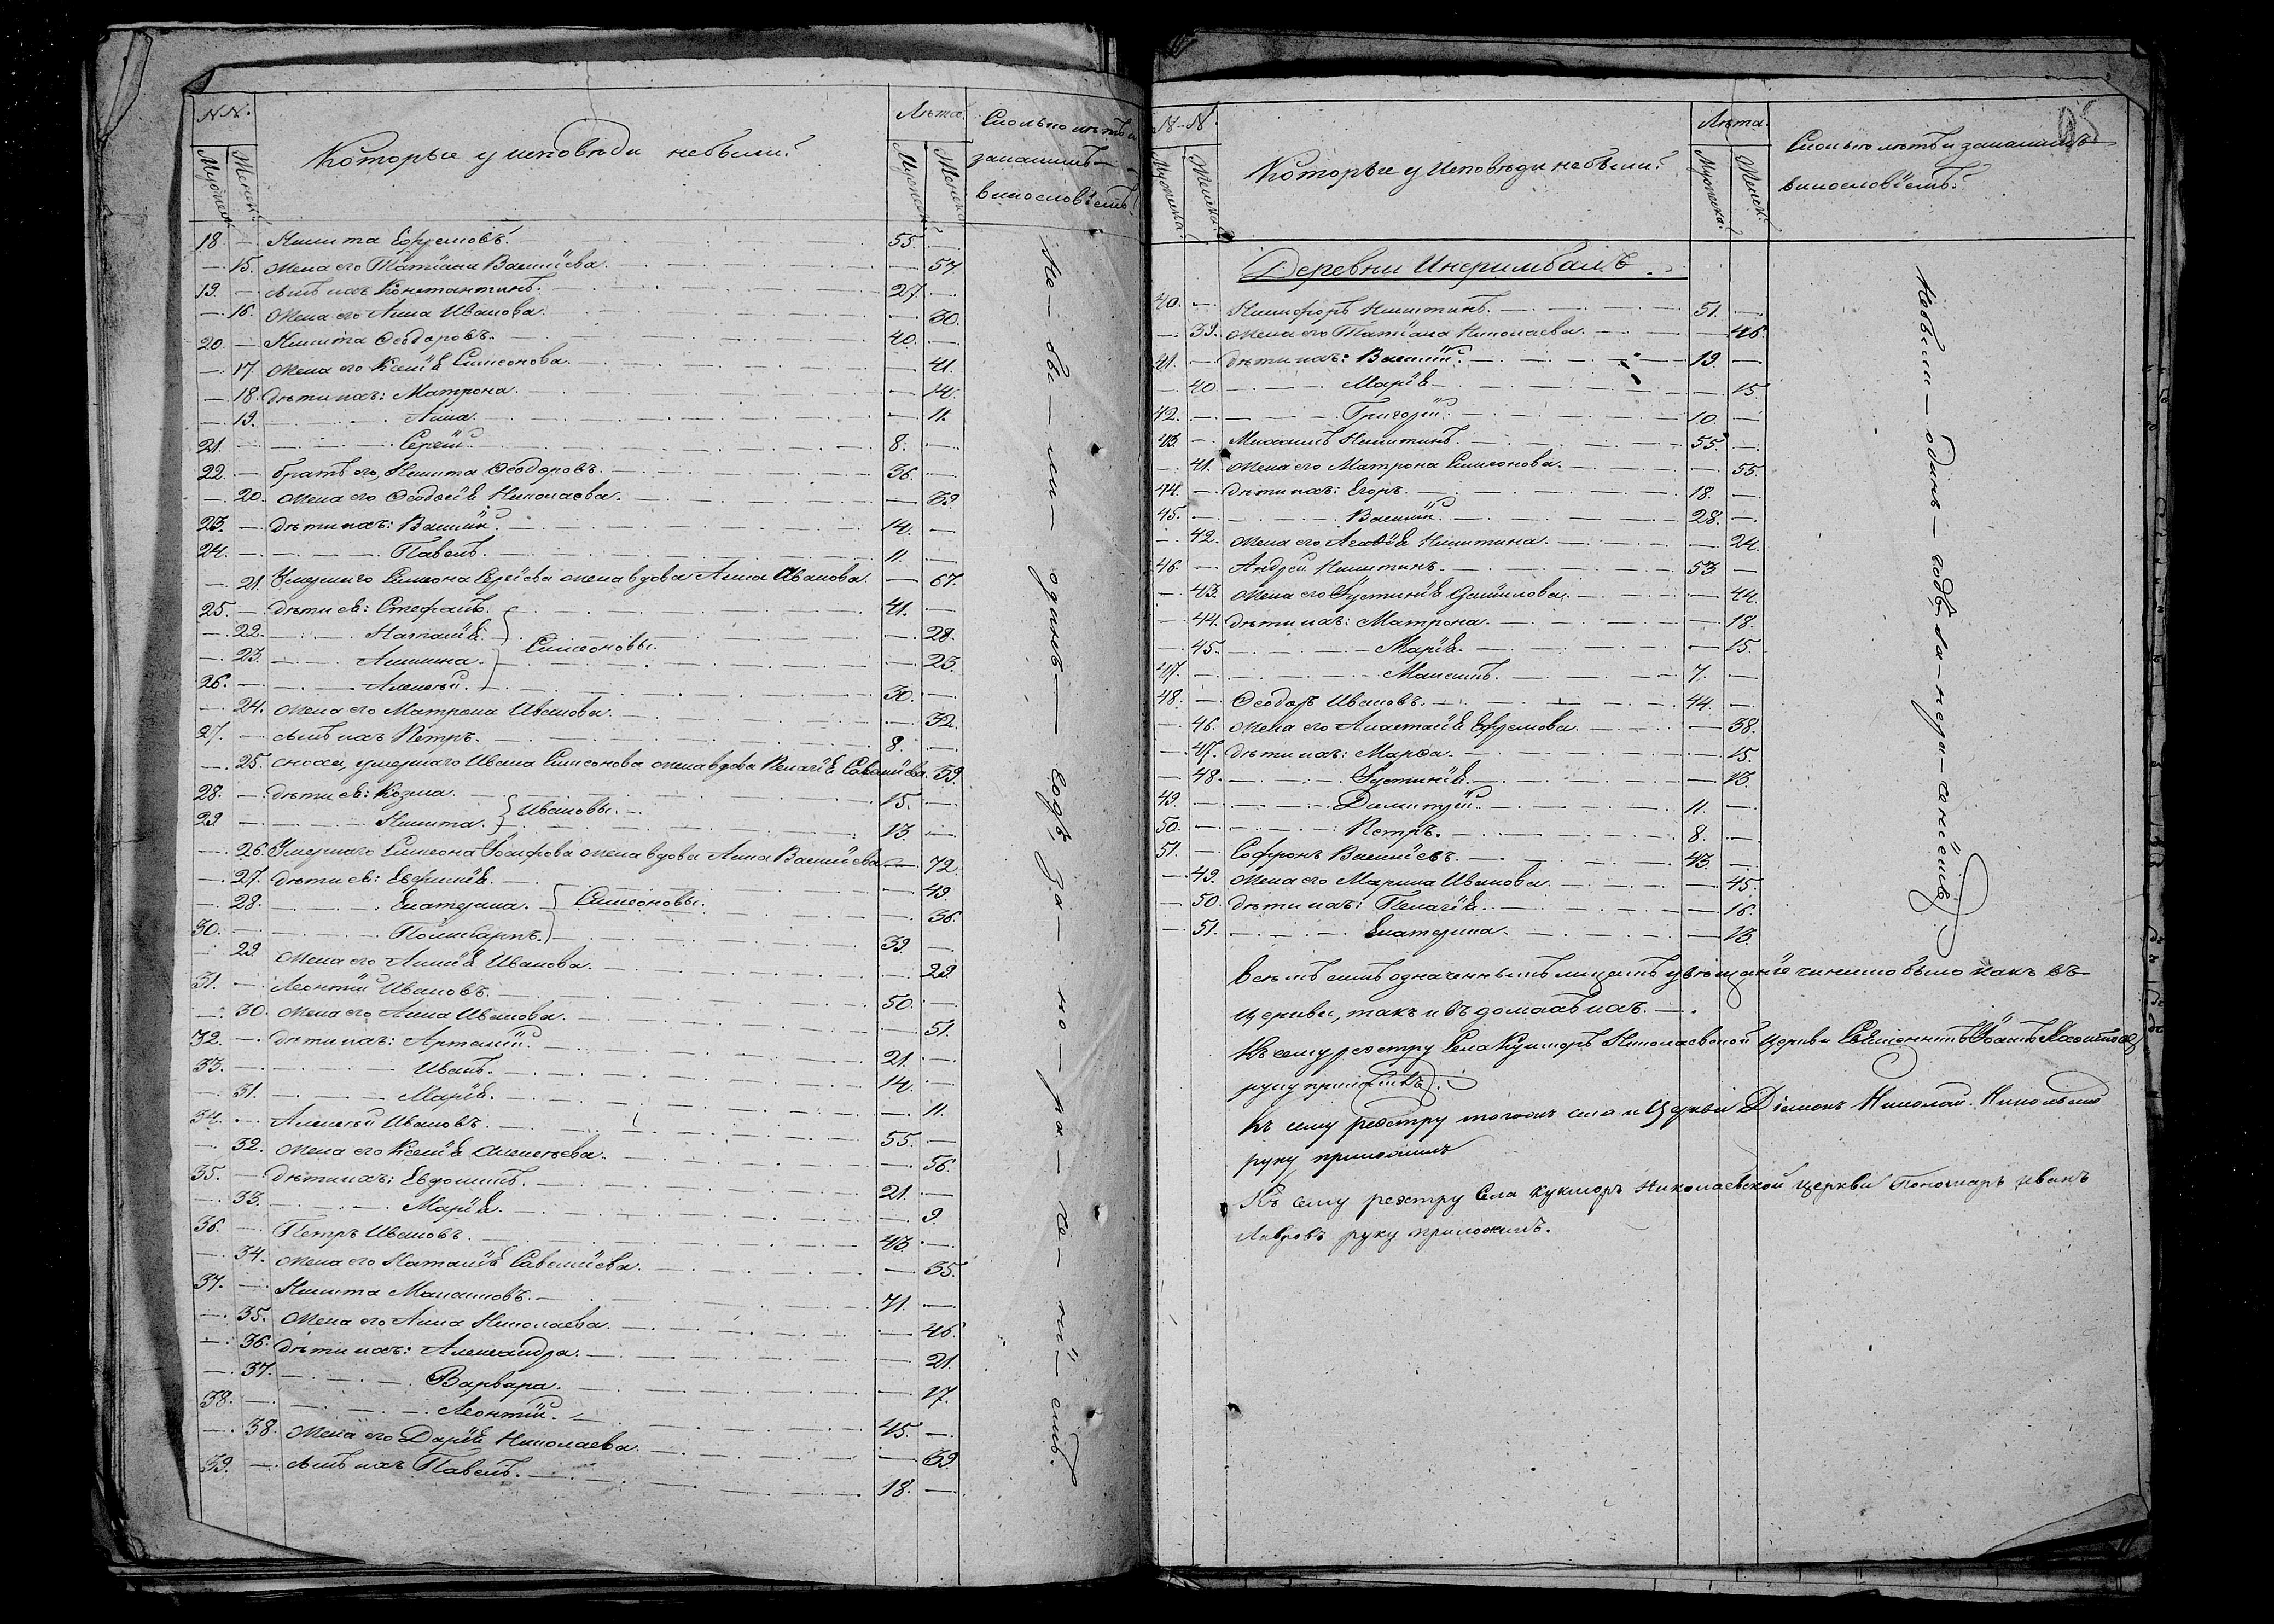 N N.
Которые у исповѣди небыли?
Лѣта.
Сколько лѣтъ и
за какимъ
винословiемъ?
Мужеск.
Женск.
Мужеск.
Женска.
18. — Никита Ефремовъ. 55. —
— 15. жена его Татiана Василiева. — 57.
19. — сынъ ихъ Константинъ. 27. —
— 16. жена его Анна Иванова. — 30.
20. — Никита Ѳеодоровъ. 40. —
— 17. жена его Ксенiя Симеонова. — 41.
— 18. дѣти ихъ: Матрона. — 14.
— 19. Анна. — 11.
21. — Сергiй. 8. —
22. — братъ его, Никита Ѳеодоровъ. 36. —
— 20. жена его Ѳеодосiя Николаева. — 39.
23. — дѣти ихъ: Василiй. 14. —
24. — Павелъ. 11. —
— 21. Умершаго Симеона Сергiева жена вдова Анна Иванова. — 67.
25. — дѣти ея: Стефанъ. 41. —
— 22. Наталiя. — 28.
Симеоновы.
— 23. Акилина. — 23.
26. — Алексѣй. 30. —
— 24. жена его Матрона Иванова. — 32.
27. — сынъ ихъ Петръ. 8. —
— 25. сноха, умершаго Ивана Симеонова жена вдова Пелагiя Савелiева. 39.
28. — дѣти ея: Козма. 15. —
Ивановы.
29 — Никита. 13 —
— 26. Умершаго Симеона Iосифова жена вдова Анна Василiева — 72.
— 27. дѣти ея: Евфимiя. — 49.
— 28. Екатерина. Симеоновы. — 36.
30. — Поликарпъ. 39. —
— 29 жена его Анисiя Иванова. — 29.
31. — Леонтiй Ивановъ. 50. —
— 30. жена его Анна Иванова. — 51.
32. — дѣти ихъ: Артемiй. 21. —
33. — Иванъ. 14. —
— 31. Марiя. — 11.
34. — Алексѣй Ивановъ. 55. —
— 32. жена его Ксенiя Алексѣева. — 56.
35. — дѣти ихъ: Евдокимъ. 21. —
— 33. Марiя. — 9.
36. — Петръ Ивановъ. 43. —
— 34. жена его Наталiя Савелiева. — 35.
37. — Никита Максимовъ. 41. —
— 35. жена его Анна Николаева. — 46.
— 36. дѣти ихъ: Александра. — 21.
— 37. Варвара. — 17.
38. — Леонтiй. 45. —
— 38. жена его Дарiя Николаева. — 39.
39. — сынъ ихъ Павелъ. 18. —
Не — бы — ли — одинъ — годъ за — не — ра — че — нi — емъ.
95
N — N
Которые у Исповѣди небыли?
Лѣта.
Сколько лѣтъ и за какимъ
винословiемъ?
Мужеска.
Женска.
Мужеска.
Женск.
Деревни
40. — Никифоръ Никитинъ. 51. —
— 39. жена его Татiана Николаева. — 46.
41. — дѣти ихъ: Василiй. 19. —
— 40. Марiя — 15
42. — Григорiй. 10. —
43. — Михаилъ Никитинъ. 55. —
— 41. жена его Матрона Симеонова. — 55.
44. — дѣти ихъ: Егоръ. 18. —
45. — Василiй. 28. —
— 42. жена его Агафiя Никитина. — 24.
46. — Андрей Никитинъ. 53. —
— 43. жена его Iустинiя Данилова. — 44.
— 44. дѣти ихъ: Матрона. — 18.
— 45. Марiя. — 15.
47. — Максимъ. 7. —
48. — Ѳеодоръ Ивановъ. 44. —
— 46. жена его Анастасiя Ефремова. — 38.
— 47. дѣти ихъ: Марѳа. — 15.
— 48. Iустинiя. — 13.
49. — Димитрiй. 11. —
50. — Петръ. 8. —
51. — Софронъ Василiевъ. 43. —
— 49. жена его Марина Иванова. — 45.
— 50. дѣти ихъ: Пелагiя. — 16.
— 51. Екатерина. — 13.
Небыли — одинъ — годъ за — нера — ченiемъ.
Всѣмъ симъ означеннымъ лицамъ увѣщанiе чинимо было какъ въ
церкви, такъ и въ домахъ ихъ.
Къ сему реэстру Села Кукморъ Николаевской Церкви Священникъ Iоаннъ
руку приложилъ.
Къ сему реэстру тогожъ села и Церкви Дiаконъ Николай Никольскiй
руку приложилъ
Къ сему реэстру Села Кукморъ Николаевской церкви Пономарь Иванъ
Лавровъ руку приложилъ.